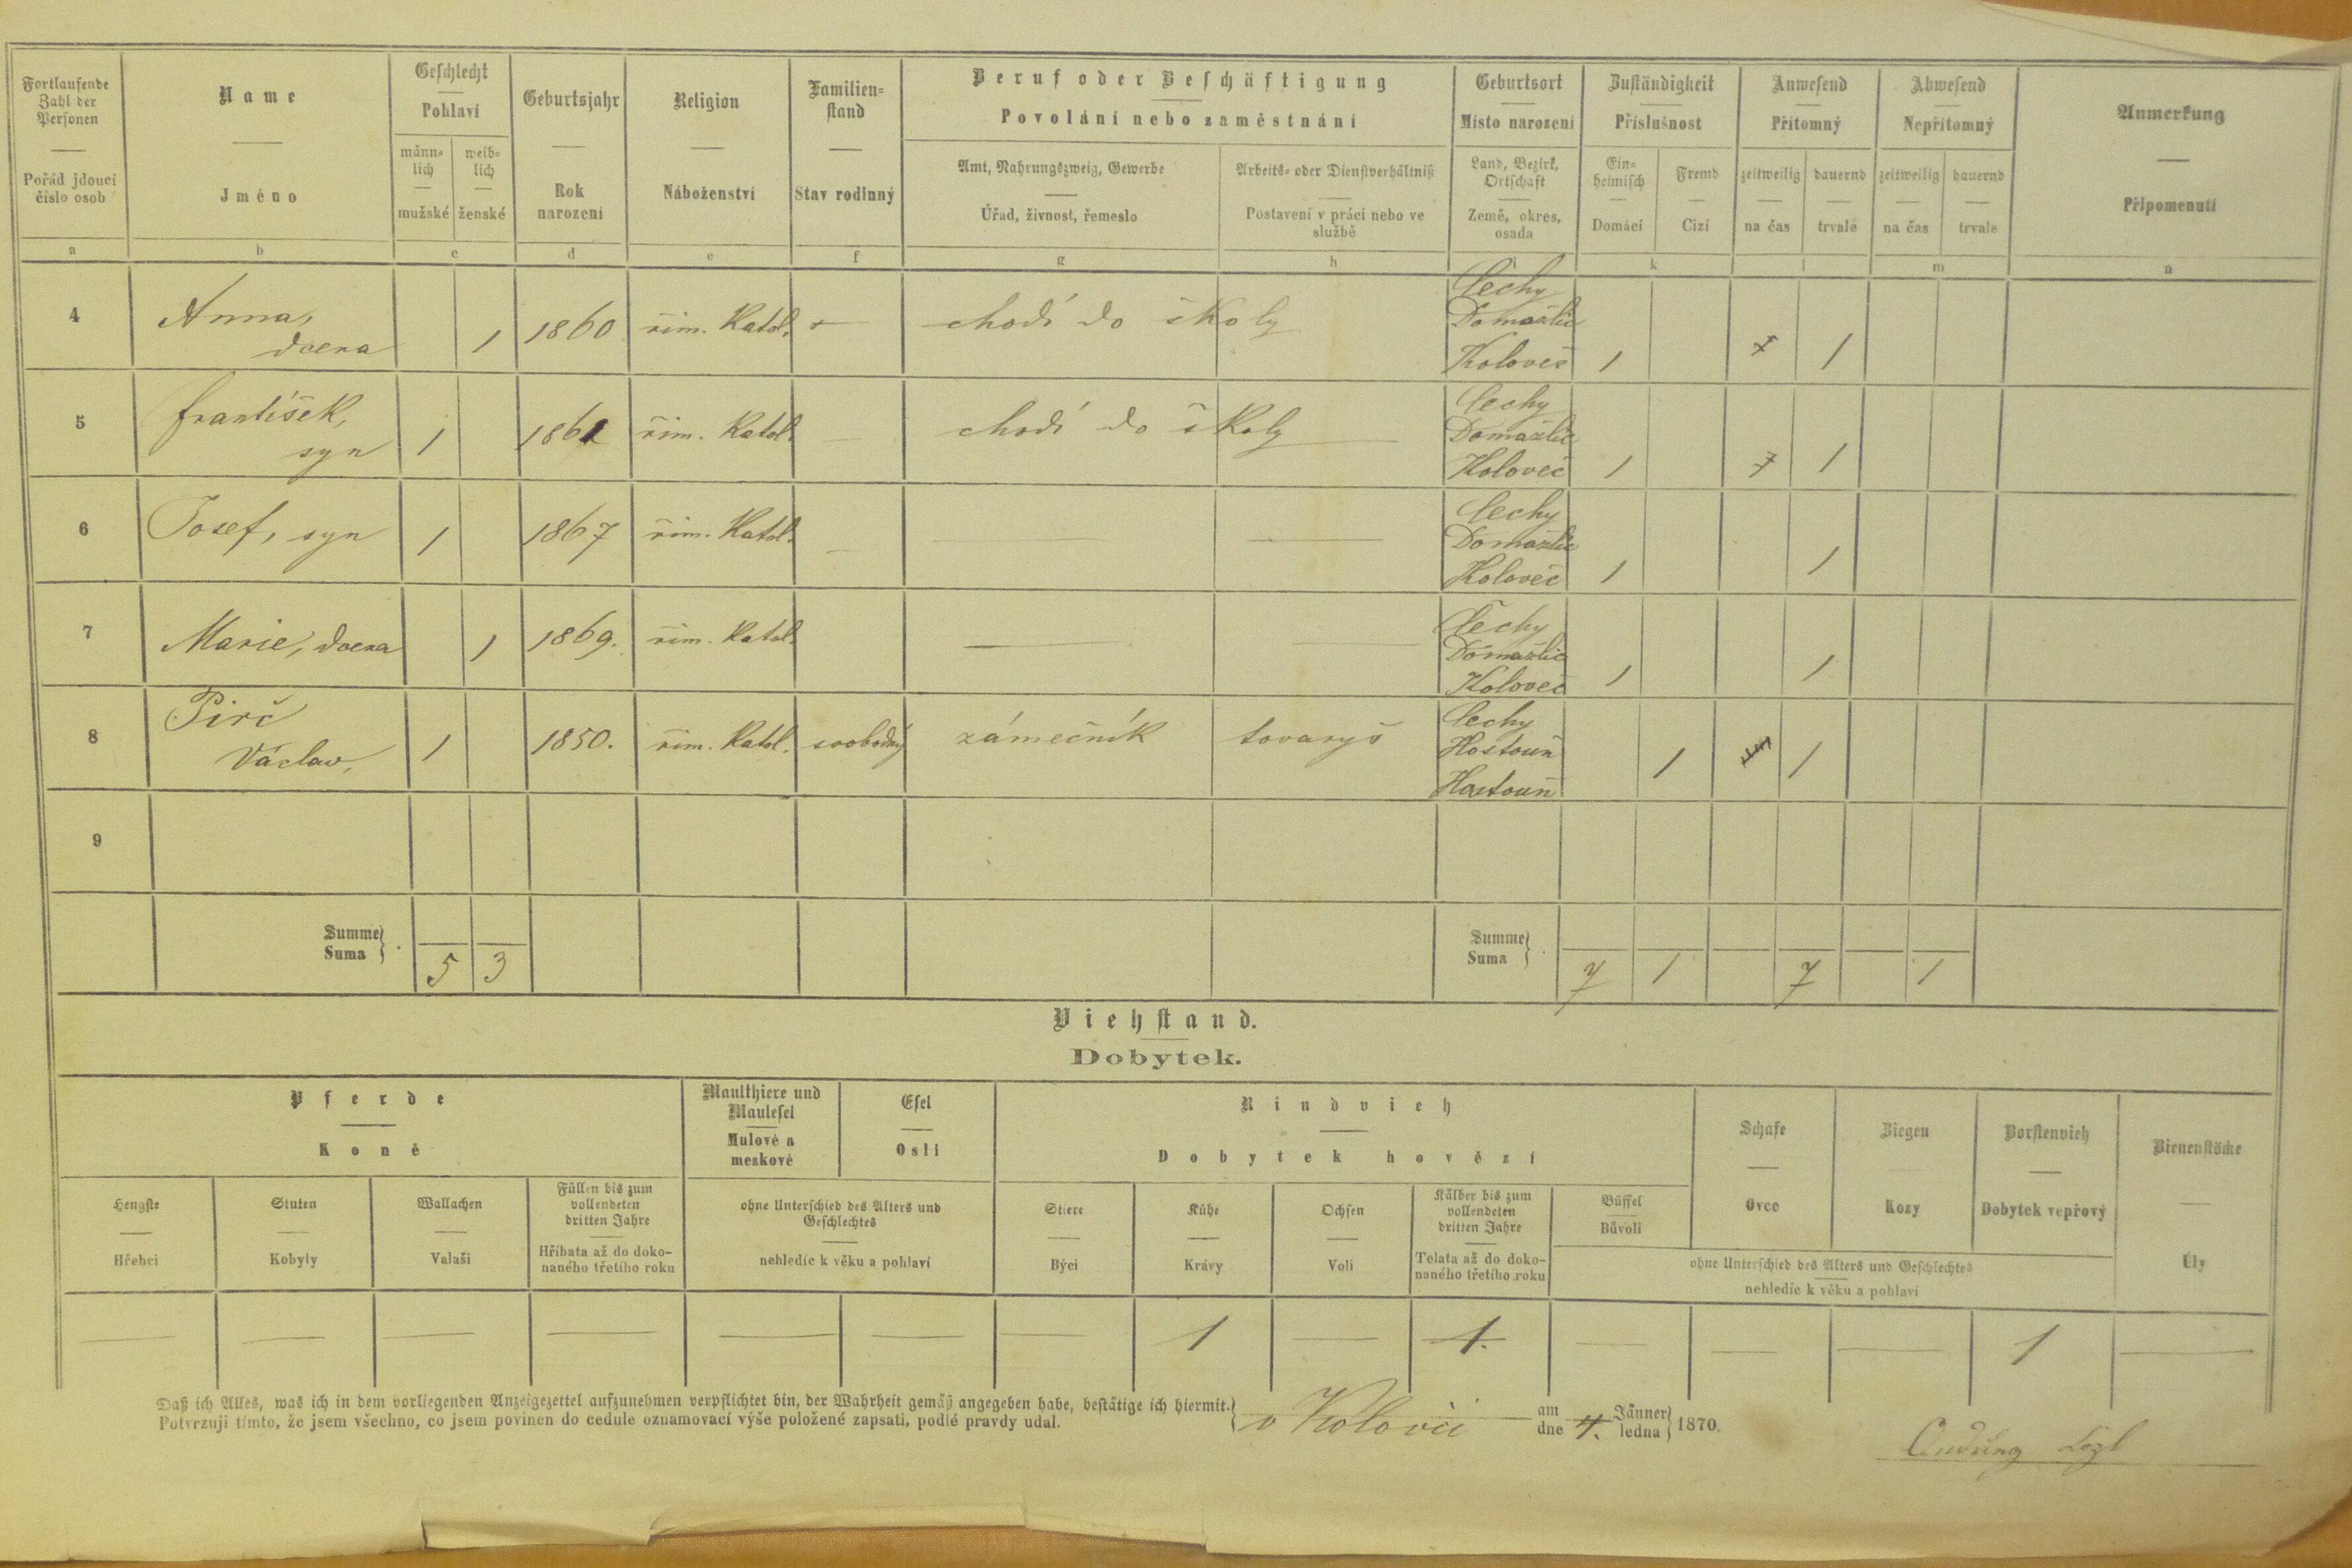 Fortlaufende Zahl der Personen
Pořád jdoucí číslo osob
Name
Jméno
Geschlecht
Pohlaví
männlich
mužské
weiblich
ženské
Geburtsjahr
Rok narození
Religion
Náboženství
Familienstand
Stav rodinný
Beruf oder Beschäftigung
Povolání nebo zaměstnání
Amt, Nahrungszweig, Gewerbe
Úřad, živnost, řemeslo
Arbeits- oder Dienstverhältniß
Postavení v práci nebo ve službě
Geburtsort
Místo narození
Land, Bezirk, Ortschaft
Země, okres, osada
Zuständigkeit
Příslušnost
Einheimisch
Domácí
Fremd
Cizí
Anwesend
Přítomný
zeitweilig
na čas
dauernd
trvale
Abwesend
Nepřítomný
zeitweilig
na čas
dauernd
trvale
Anmerkung
Připomenutí
a b c d e f g h i k l m n
4 Anna, dcera 1 1860 řim. Katol. chodí do školy Čechy Domažlic Koloveč 1 1
5 František, syn 1 1861 řim. Katol. — chodí do školy — Čechy Domažlic Koloveč 1 1
6 Josef, syn 1 1867 řim. Katol. — — — Čechy Domažlic Koloveč 1 1
7 Marie, dcera 1 1869. řim. Katol. — — Čechy Domažlic Koloveč 1 1
8 Pirč Václav, 1 1850. řim. Katol. svobodný zámečník tovaryš Čechy Hostouň Hostouň 1 1
9
Summe
Suma } . 5 3
Summe
Suma } . 7 1 7 1
Viehstand.
Dobytek.
Pferde
Koně
Hengste
Hřebci
Stuten
Kobyly
Wallachen
Valaši
Füllen bis zum vollendeten dritten Jahre
Hříbata až do dokonaného třetího roku
Maulthiere und Maulesel
Mulové a mezkové
Esel
Osli
ohne Unterschied des Alters und Geschlechtes
nehledíc k věku a pohlaví
Rindvieh
Dobytek hovězí
Stiere
Býci
Kühe
Krávy
Ochsen
Voli
Kälber bis zum vollendeten dritten Jahre
Telata až do dokonaného třetího roku
Büffel
Bůvoli
Schafe
Ovce
Ziegen
Kozy
Borstenvieh
Dobytek vepřový
ohne Unterschied des Alters und Geschlechtes
nehledíc k věku a pohlaví
Bienenstöcke
Úly
— — — — — — — 1 — 1. — — — 1 —
Daß ich Alles, was ich in dem vorliegenden Anzeigezettel aufzunehmen verpflichtet bin, der Wahrheit gemäß angegeben habe, bestätige ich hiermit.
Potvrzuji tímto, že jsem všechno, co jsem povinen do cedule oznamovací výše položené zapsati, podlé pravdy udal.
v Kolovči
am
dne 4. Jänner
ledna } 1870.